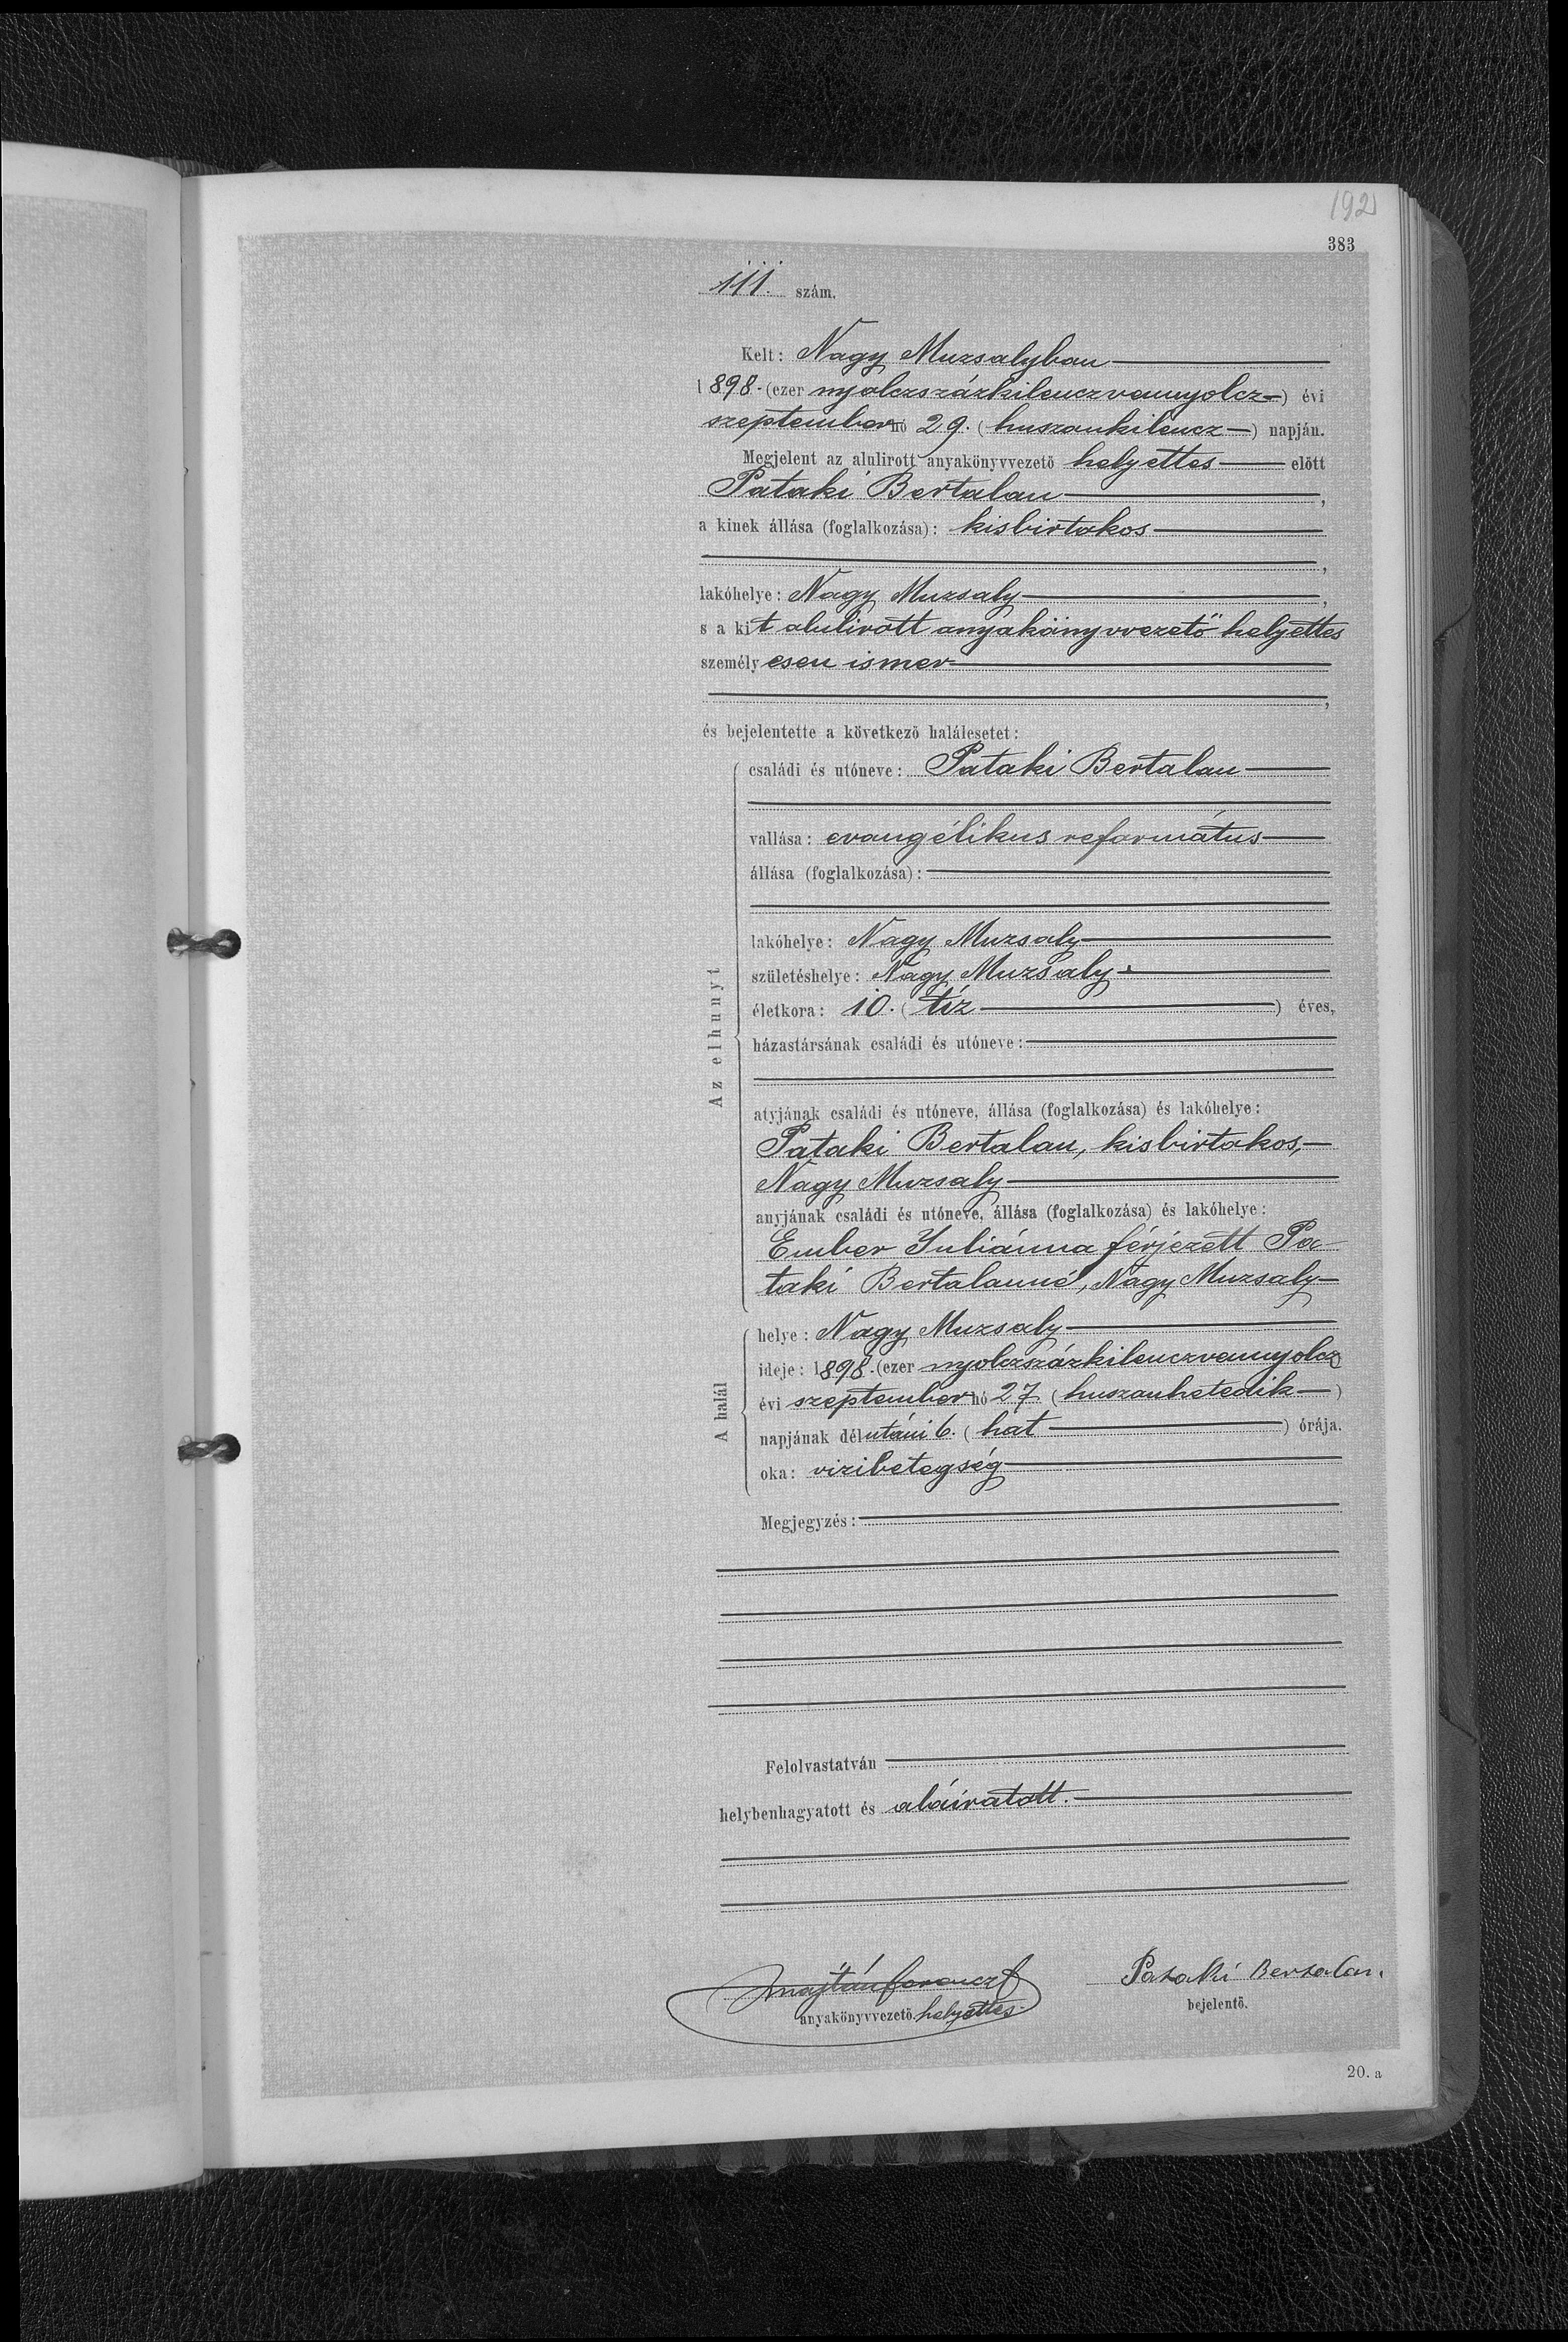 192
383
111. szám.
Kelt: Nagy Muzsalyban
1898. (ezer nyolczszázkilenczvennyolcz) évi
szeptember hó 29. (huszonkilencz) napján.
Megjelent az alulirott anyakönyvvezető helyettes előtt
Pataki Bertalan,
a kinek állása (foglalkozása): kisbirtokos
,
lakóhelye: Nagy Muzsaly,
s a kit alulirott anyakönyvvezető helyettes
személyesen ismer
,
és bejelentette a következő halálesetet:
Az elhunyt
családi és utóneve: Pataki Bertalan
vallása: evangélikus református
állása (foglalkozása):
lakóhelye: Nagy Muzsaly
születéshelye: Nagy Muzsaly
életkora: 10. (tíz) éves,
házastársának családi és utóneve:
atyjának családi és utóneve, állása (foglalkozása) és lakóhelye:
Pataki Bertalan, kisbirtokos,
Nagy Muzsaly
anyjának családi és utóneve, állása (foglalkozása) és lakóhelye:
Ember Juliánna férjezett Pa-
taki Bertalanné, Nagy Muzsaly
A halál
helye: Nagy Muzsaly
ideje: 1898. (ezer nyolczszázkilenczvennyolcz)
évi szeptember hó 27 (huszonhetedik)
napjának délutáni 6. (hat) órája.
oka: vizibetegség
Megjegyzés:
Felolvastatván
helybenhagyatott és aláíratott.
Majtán Ferencz
Pataki Bertalan.
anyakönyvvezető. helyettes.
bejelentő.
20. a